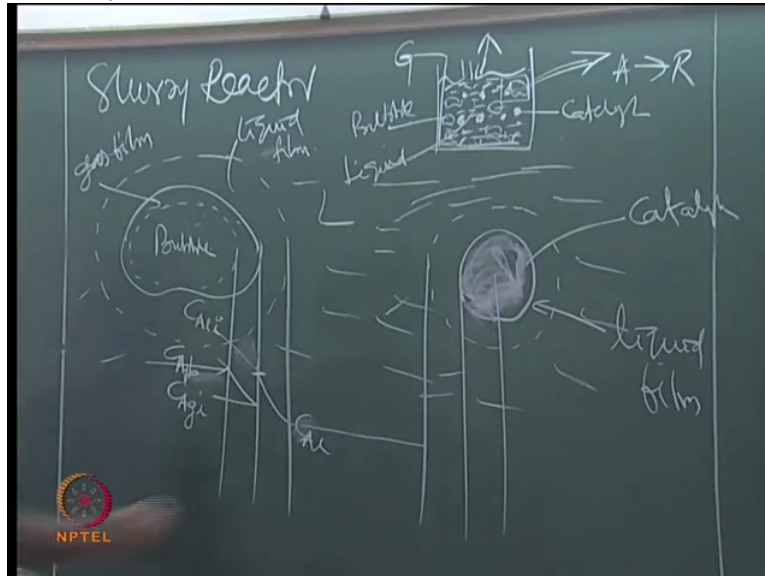 Slurry Reactor
G
A → R
Bubble
Catalyst
Liquid
gas film
liquid film
Bubble
L
Catalyst
liquid film
C_Ali
C_Ab
C_Agi
C_Al
NPTEL